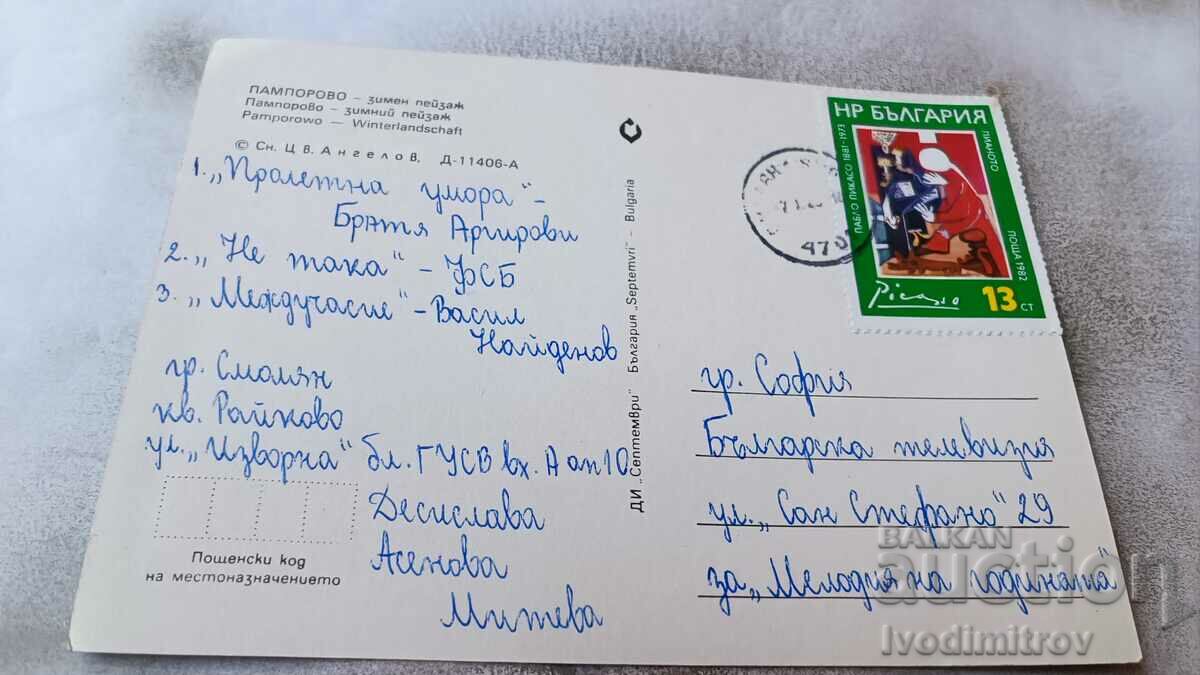 ПАМПОРОВО – зимен пейзаж
Пампорово – зимний пейзаж
Pamporowo — Winterlandschaft
© Сн. Цв. Ангелов, Д-11406-А
1. „Пролетна умора" -
Братя Аргирови
2. „Не така" - ФСБ
3. „Междучасие" - Васил
Найденов
гр. Смолян
кв. Райково
ул. „Изворна" бл. ГУСВ вх. А ап 10
Десислава
Асенова
Митева
Пощенски код
на местоназначението
ДИ „Септември" България „Septemvri" - Bulgaria
НР БЪЛГАРИЯ
ПАБЛО ПИКАСО 1881-1973
ПИАНОТО
ПОЩА 1982
Picasso
13 СТ
470
гр. София
Българска телевизия
ул. „Сан Стефано" 29
за „Мелодия на годината"
BALKAN
auction
Ivodimitrov